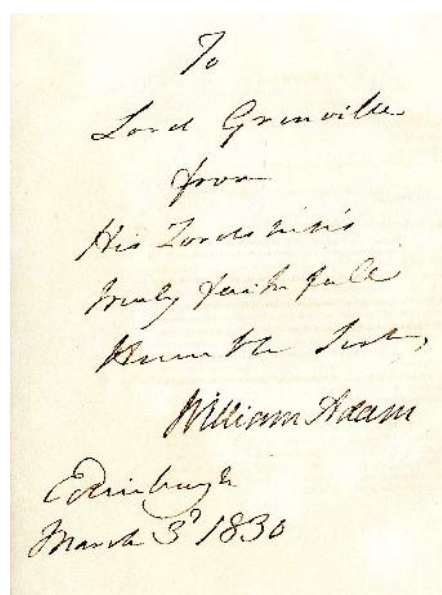 To
Lord Grenville
from
His Lordship's
truly faithfull
Humble
William Adam
Edinburgh
March 3d 1830